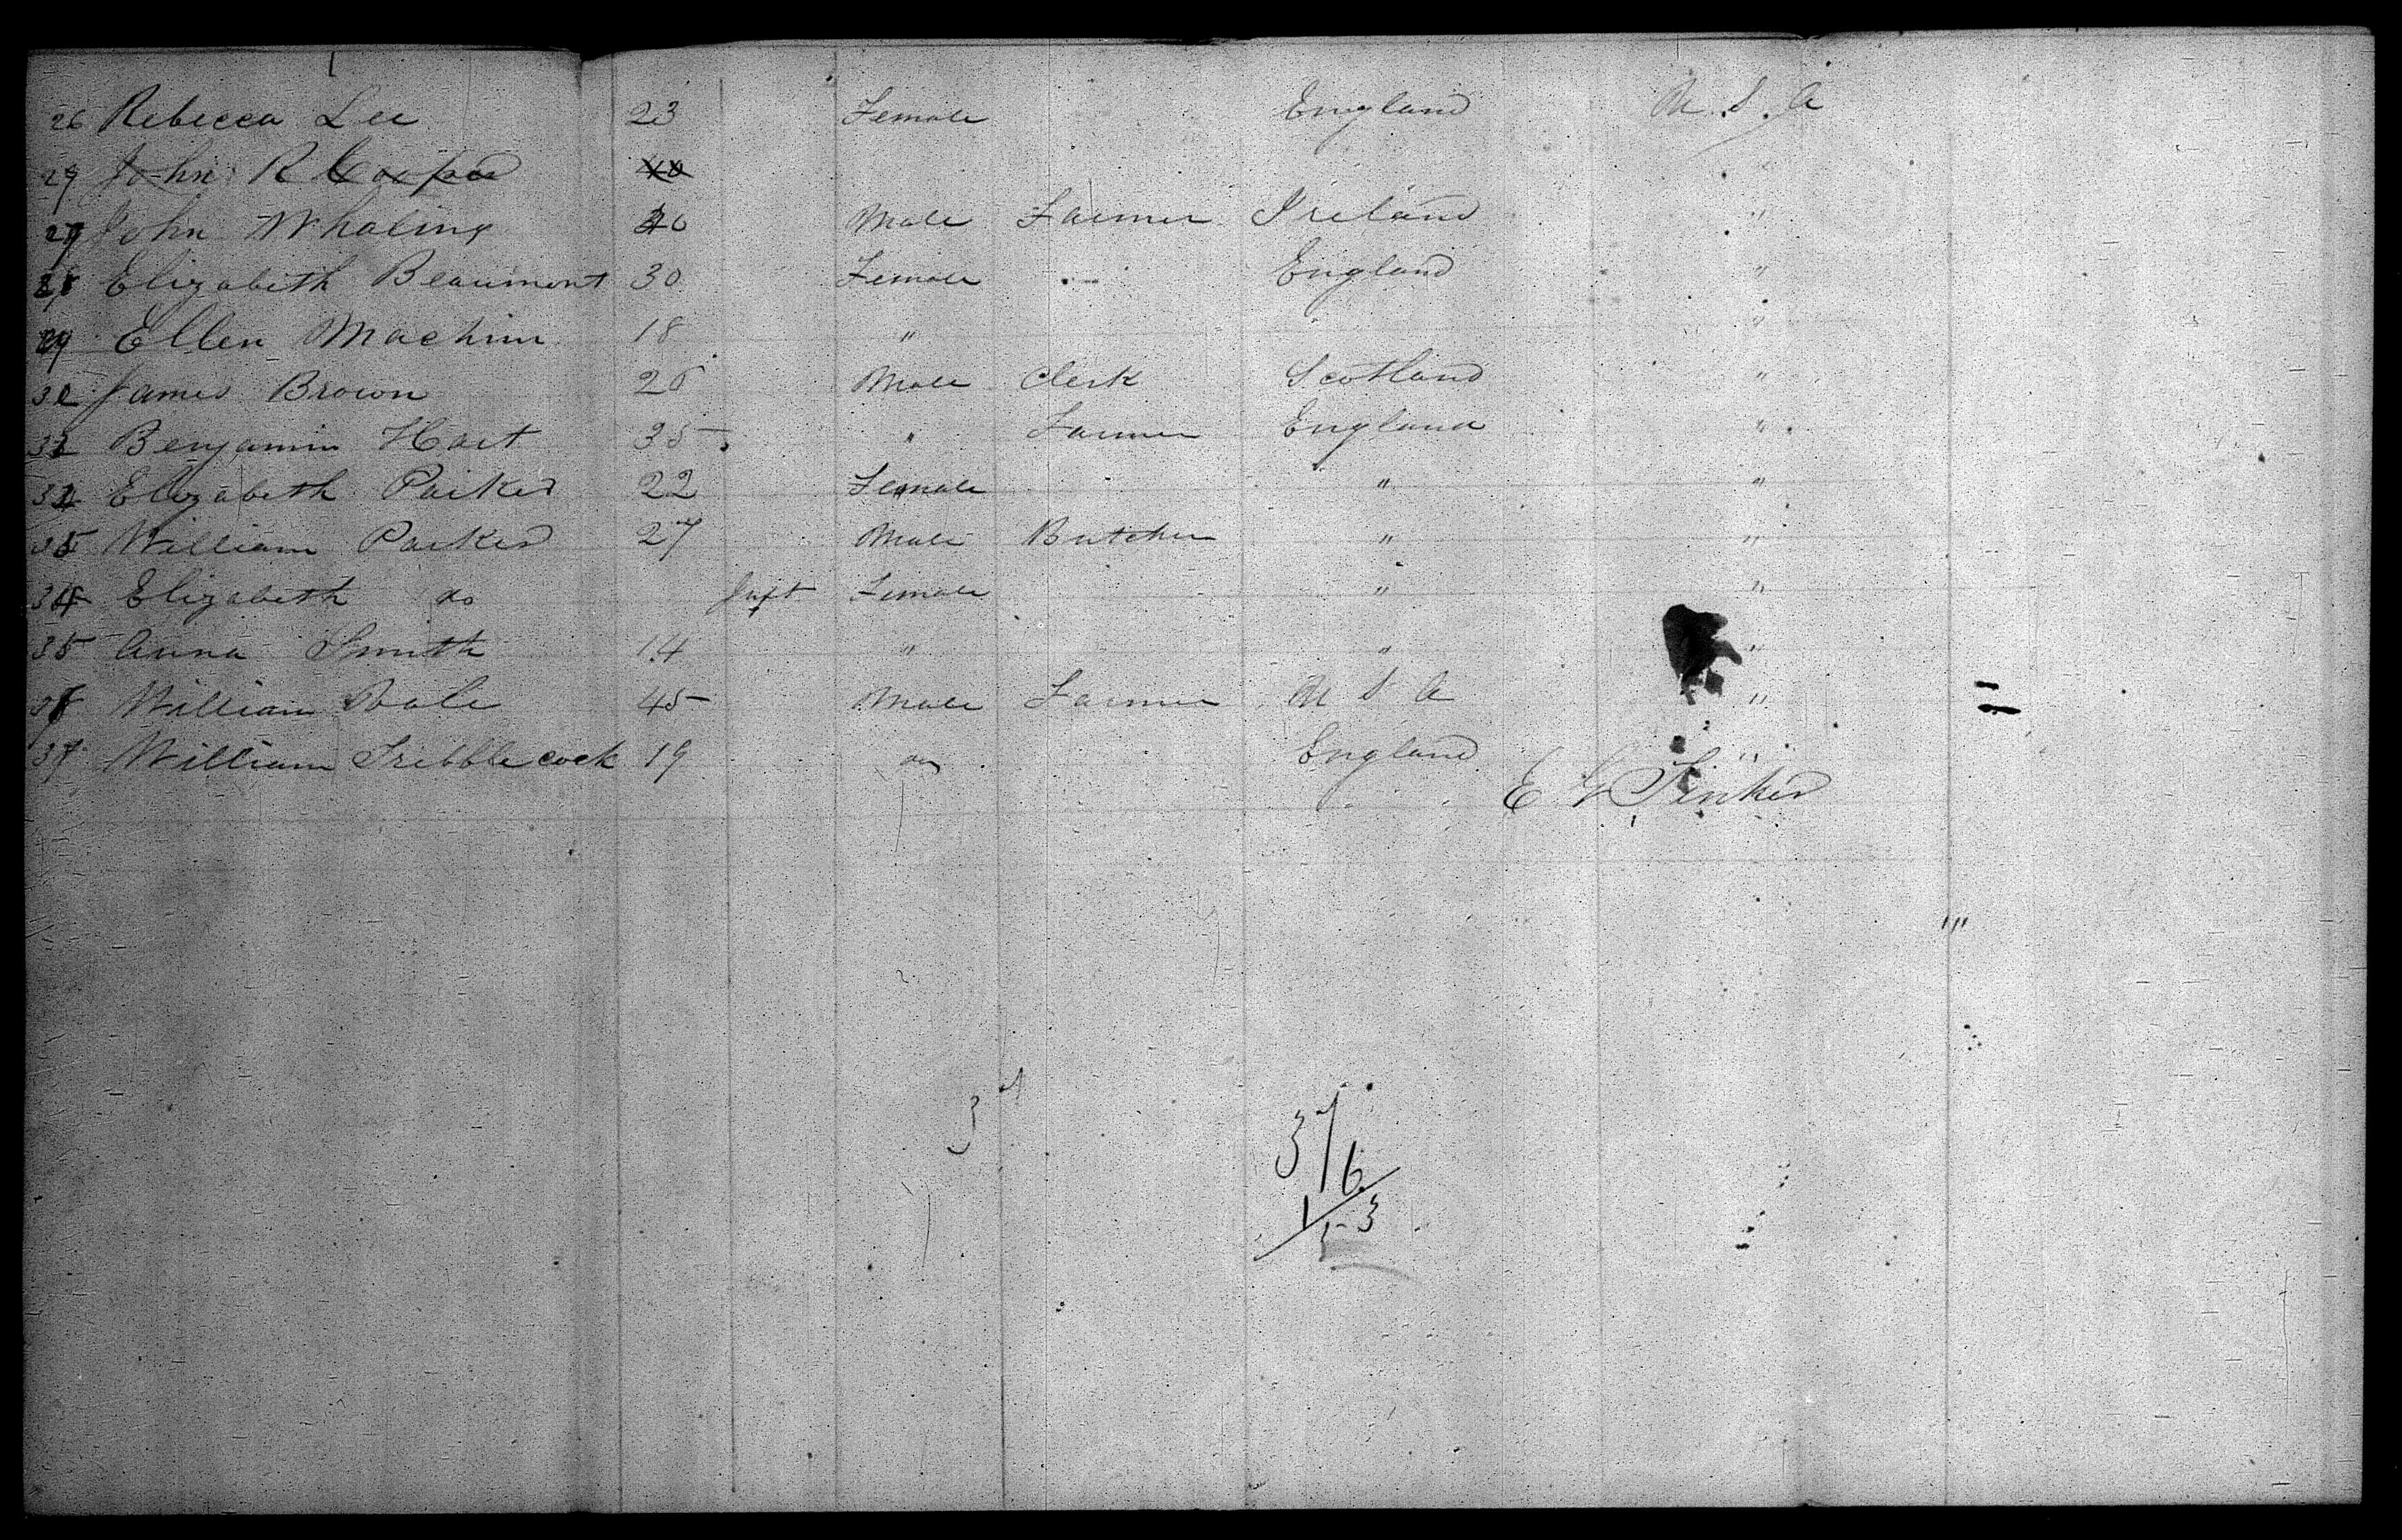 26 Rebecca Lee 23 Female England U.S.A
27 John R Cooper 40 "
27 John Whaling 40 Male Farmer Ireland "
28 Elizabeth Beaumont 30 Female - England "
29 Ellen Machinn 18 " "
30 James Brown 26 Male Clerk Scotland "
31 Benjamin Hart 35 " Farmer England "
32 Elizabeth Parker 22 Female " "
33 William Parker 27 Male Butcher " "
34 Elizabeth do Inft Female " "
35 Anna Smith 14 " " "
36 William Poole 45 Male Farmer U S A "
37 William Tribblecock 19 do England "
E G Tinker
37
37
16
53